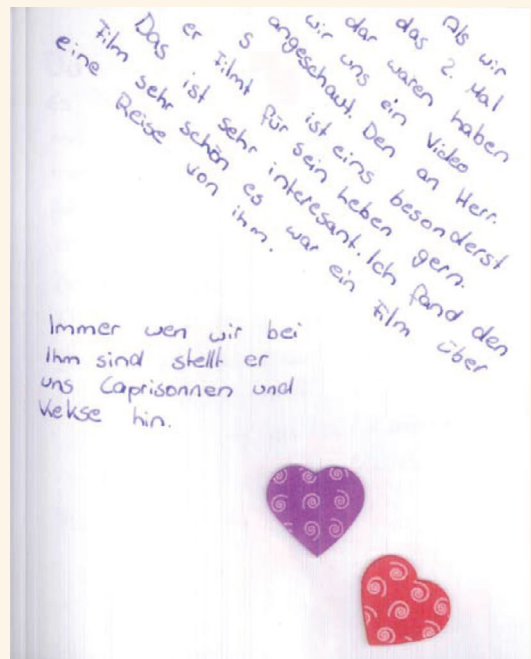 Als wir
das 2. Mal
dar waren haben
wir uns ein Video
angeschaut. Den an Herr.
S ist eins besonderst
er Filmt für sein Leben gern.
Das ist sehr interesant. Ich fand den
Film sehr schön es war ein Film über
eine Reise von ihm.
Immer wen wir bei
Ihm sind stellt er
uns Caprisonnen und
Kekse hin.